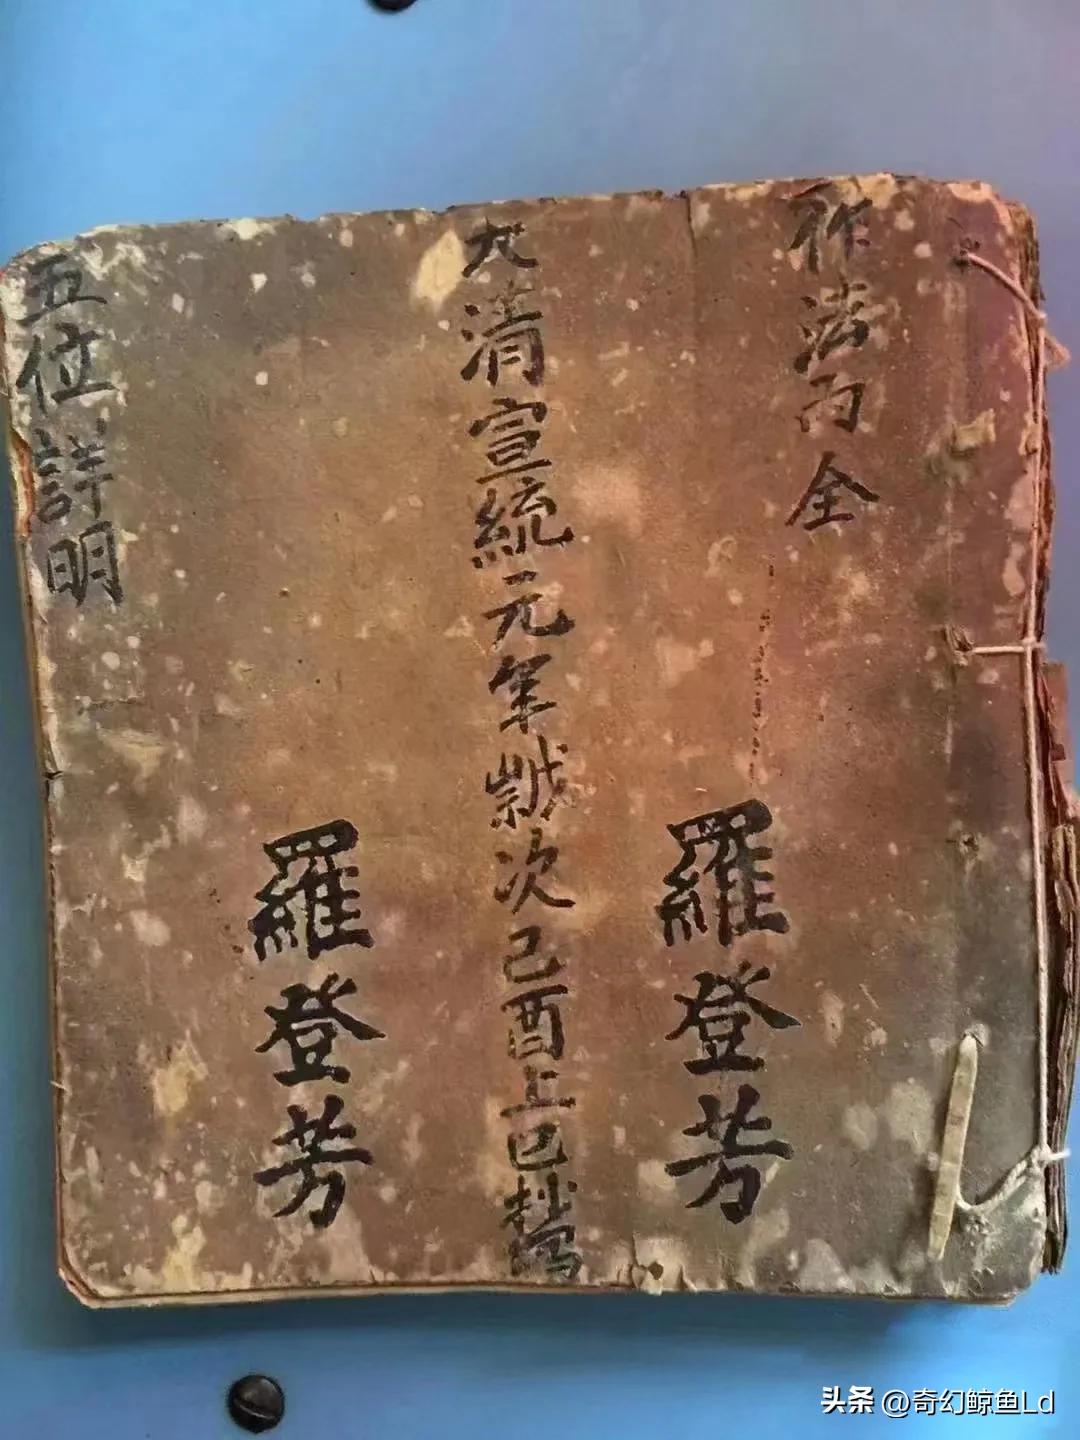 作法両全
羅登芳
大清宣統元年歲次己酉上巳抄寫
羅登芳
五位詳明
头条 @奇幻鲸鱼Ld